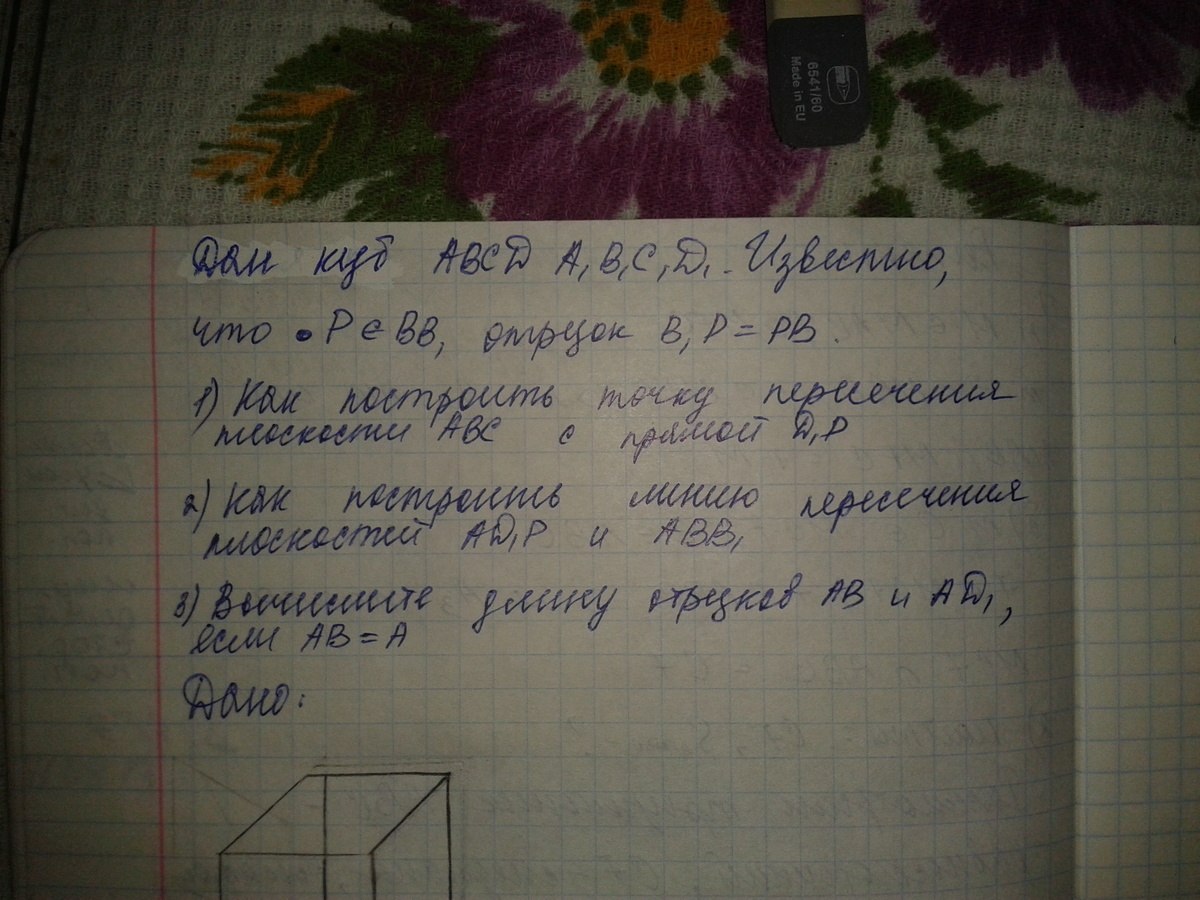 6541/60
Made in EU
Дан куб ABCD A₁B₁C₁D₁. Известно,
что • P ∈ BB₁ отрезок B₁P = PB.
1) Как построить точку пересечения
плоскости ABC с прямой D₁P
2) Как построить линию пересечения
плоскостей AD₁P и ABB₁
3) Вычислите длину отрезков AB и AD₁,
если AB = A
Дано: